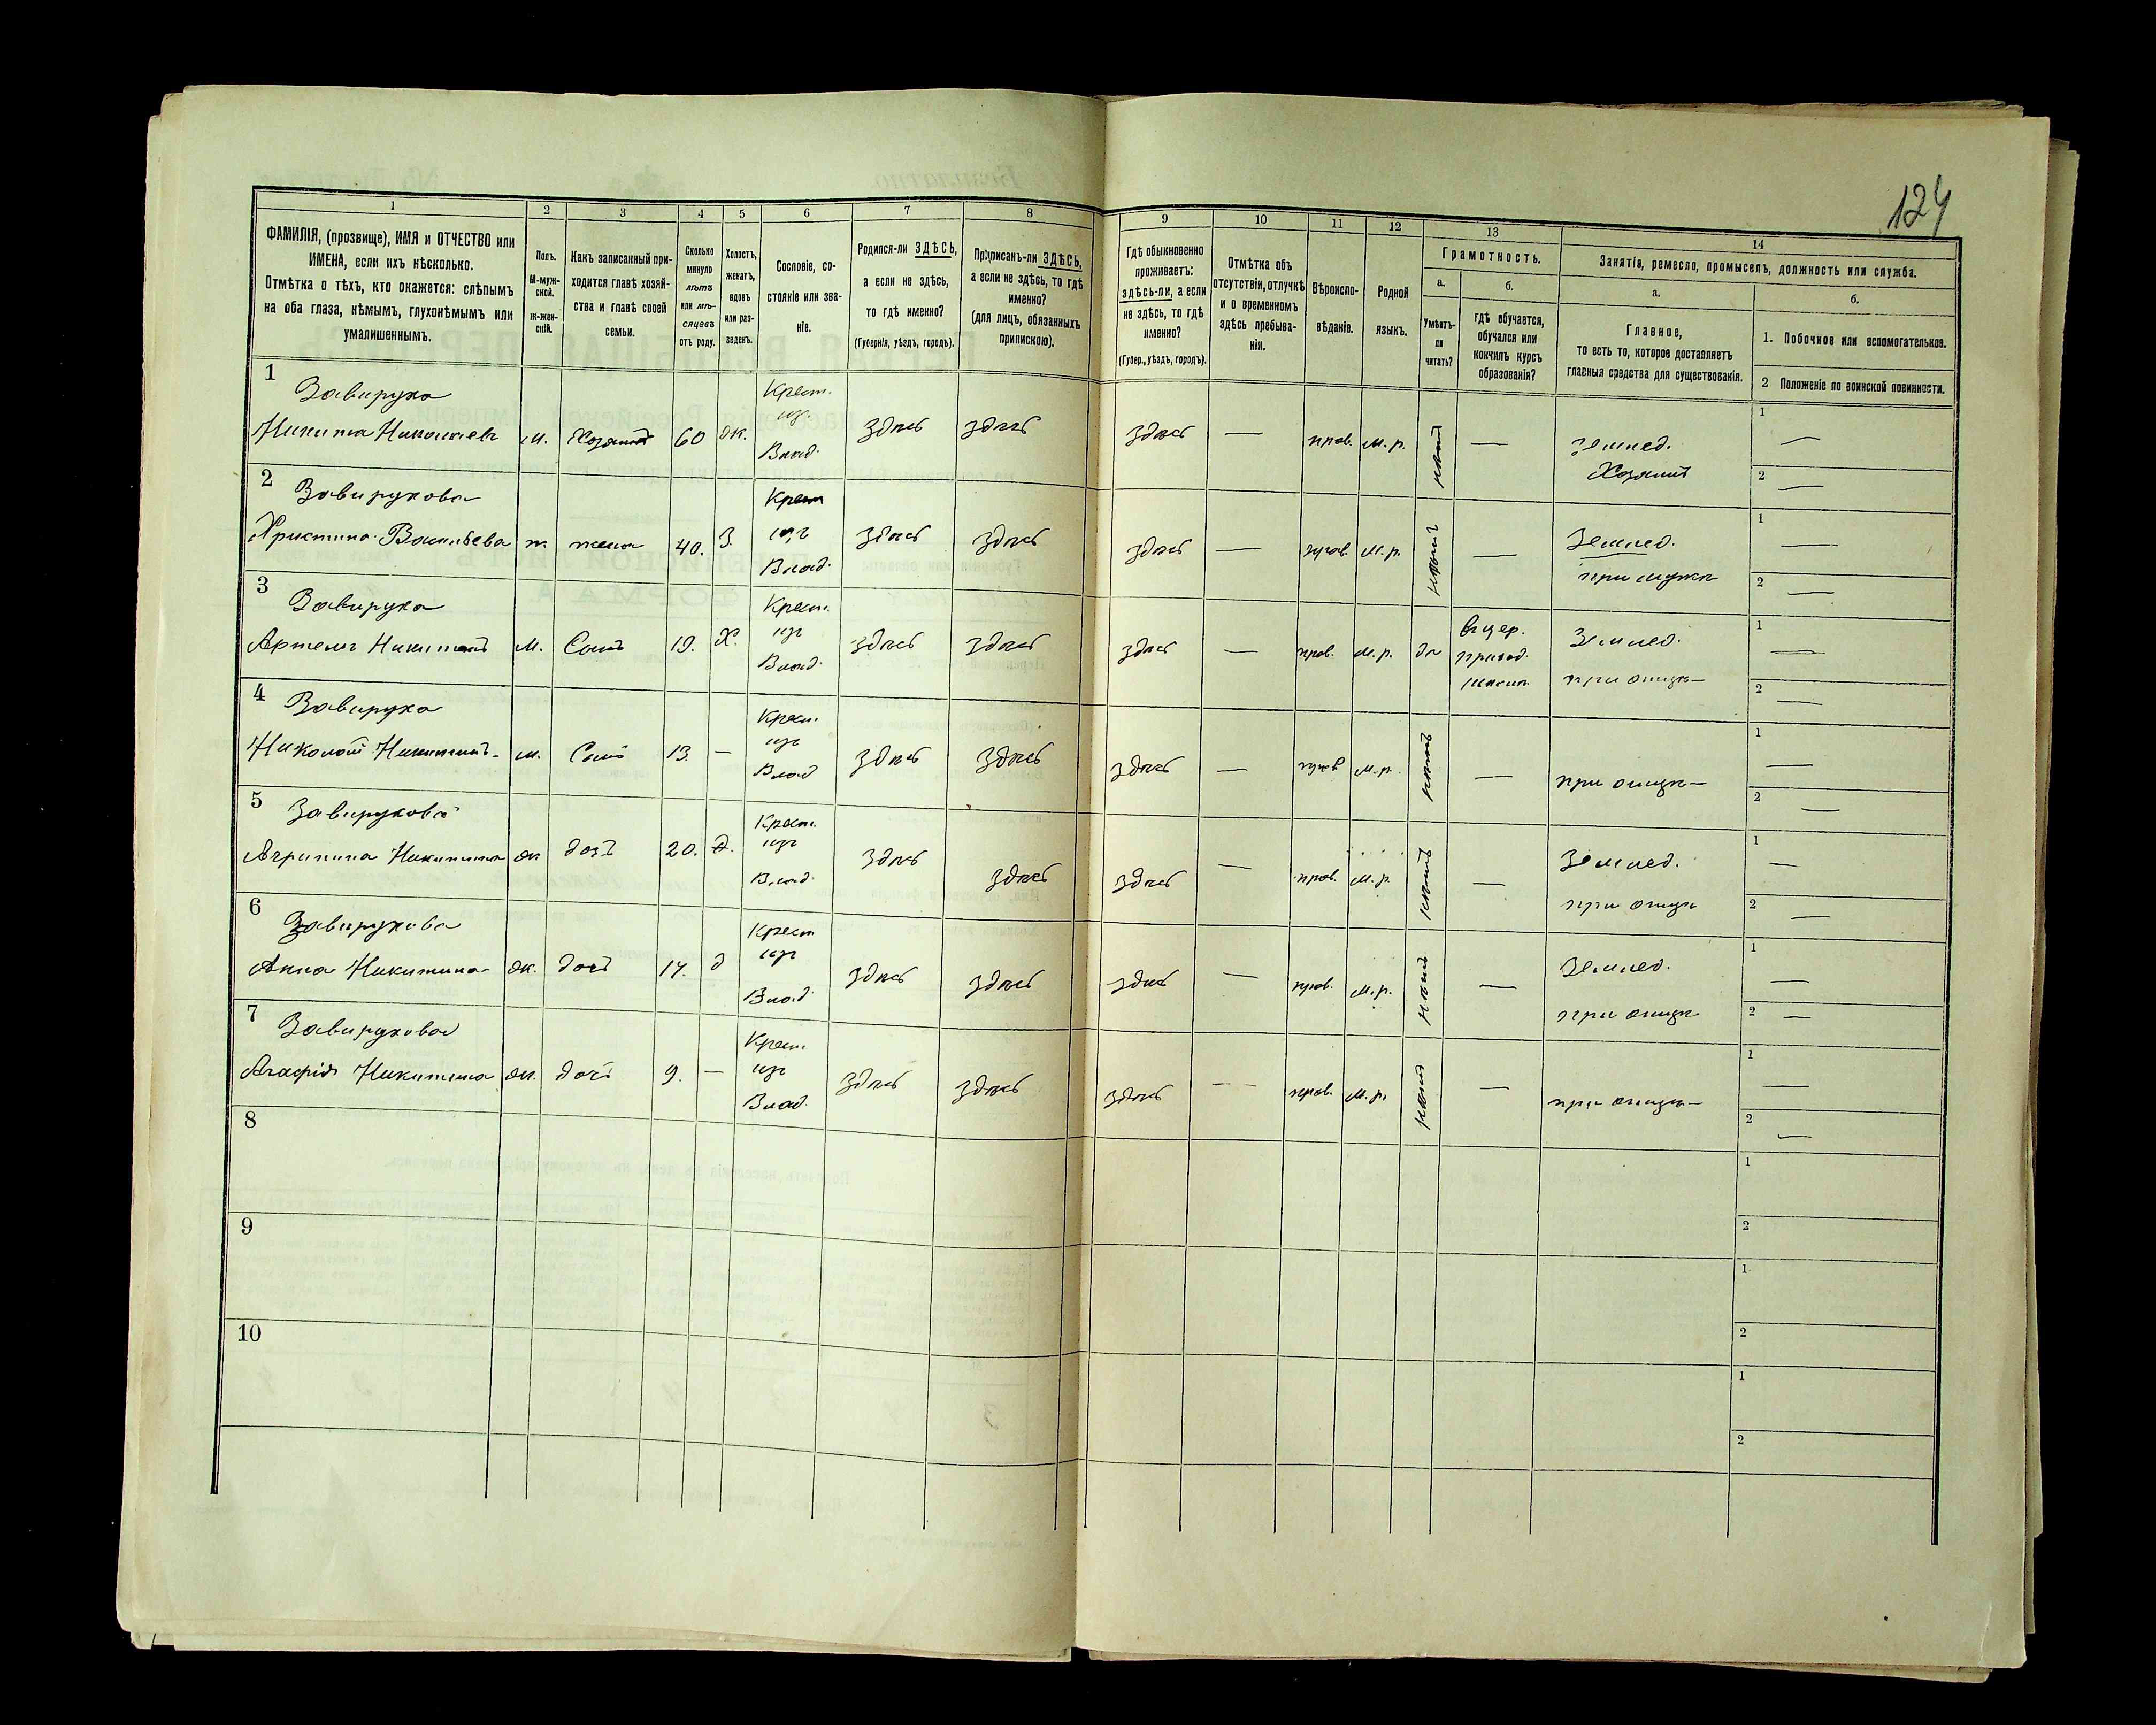 124
1 2 3 4 5 6 7 8 9 10 11 12 13 14
ФАМИЛІЯ, (прозвище), ИМЯ и ОТЧЕСТВО или
ИМЕНА, если ихъ нѣсколько.
Отмѣтка о тѣхъ, кто окажется: слѣпымъ
на оба глаза, нѣмымъ, глухонѣмымъ или
умалишеннымъ.
Полъ.
М-муж-
ской.
ж-жен-
скій.
Какъ записанный при-
ходится главѣ хозяй-
ства и главѣ своей
семьи.
Сколько
минуло
лѣтъ
или мѣ-
сяцевъ
отъ роду.
Холостъ,
женатъ,
вдовъ
или раз-
веденъ.
Сословіе, со-
стояніе или зва-
ніе.
Родился-ли ЗДѢСЬ,
а если не здѣсь,
то гдѣ именно?
(Губернія, уѣздъ, городъ).
Приписанъ-ли ЗДѢСЬ,
а если не здѣсь, то гдѣ
именно?
(для лицъ, обязанныхъ
припискою).
Гдѣ обыкновенно
проживаетъ:
здѣсь-ли, а если
не здѣсь, то гдѣ
именно?
(Губер., уѣздъ, городъ).
Отмѣтка объ
отсутствіи, отлучкѣ
и о временномъ
здѣсь пребыва-
ніи.
Вѣроиспо-
вѣданіе.
Родной
языкъ.
Грамотность.
а.
Умѣетъ-
ли
читать?
б.
гдѣ обучается,
обучался или
кончилъ курсъ
образованія?
Занятія, ремесло, промыселъ, должность или служба.
а.
Главное,
то есть то, которое доставляетъ
главныя средства для существованія.
б.
1. Побочное или вспомогательное.
2 Положеніе по воинской повинности.
1 Завируха Крест. 1
Никита Николаевъ м. Хозяинъ 60 ж. изъ здѣсь здѣсь здѣсь — прав. м. р. нѣтъ — землед. —
Влад. Хозяинъ 2 —
2 Завирухова Крест 1
Христина Васильева ж жена 40. З. изъ здѣсь здѣсь здѣсь — прав. м. р. нѣтъ — Землед. —
Влад. при мужѣ 2 —
3 Завируха Крест. вцер. Землед. 1
Артемъ Никитинъ м. Сынъ 19. Х. изъ здѣсь здѣсь здѣсь — прав. м. р. да приход. —
Влад. школѣ при отцѣ — 2 —
4 Завируха Крест. 1
Николай Никитинъ м. Сынъ 13. — изъ здѣсь здѣсь здѣсь — прав м. р. нѣтъ — при отцѣ — —
Влад 2 —
5 Завирухова Крест. 1
Агрипина Никитина ж дочь 20. д. изъ здѣсь здѣсь здѣсь — прав. м. р. нѣтъ — Землед. —
Влад. при отцѣ 2 —
6 Завирухова Крест 1
Анна Никитина ж. дочь 17. д изъ здѣсь здѣсь здѣсь — прав. м. р. нѣтъ — Землед. —
Влад. при отцѣ 2 —
7 Завирухова Крест. 1
Агафія Никитина ж. дочь 9. — изъ здѣсь здѣсь здѣсь — прав. м. р. нѣтъ — при отцѣ — —
Влад. 2 —
8 1
2
9 1
2
10 1
2